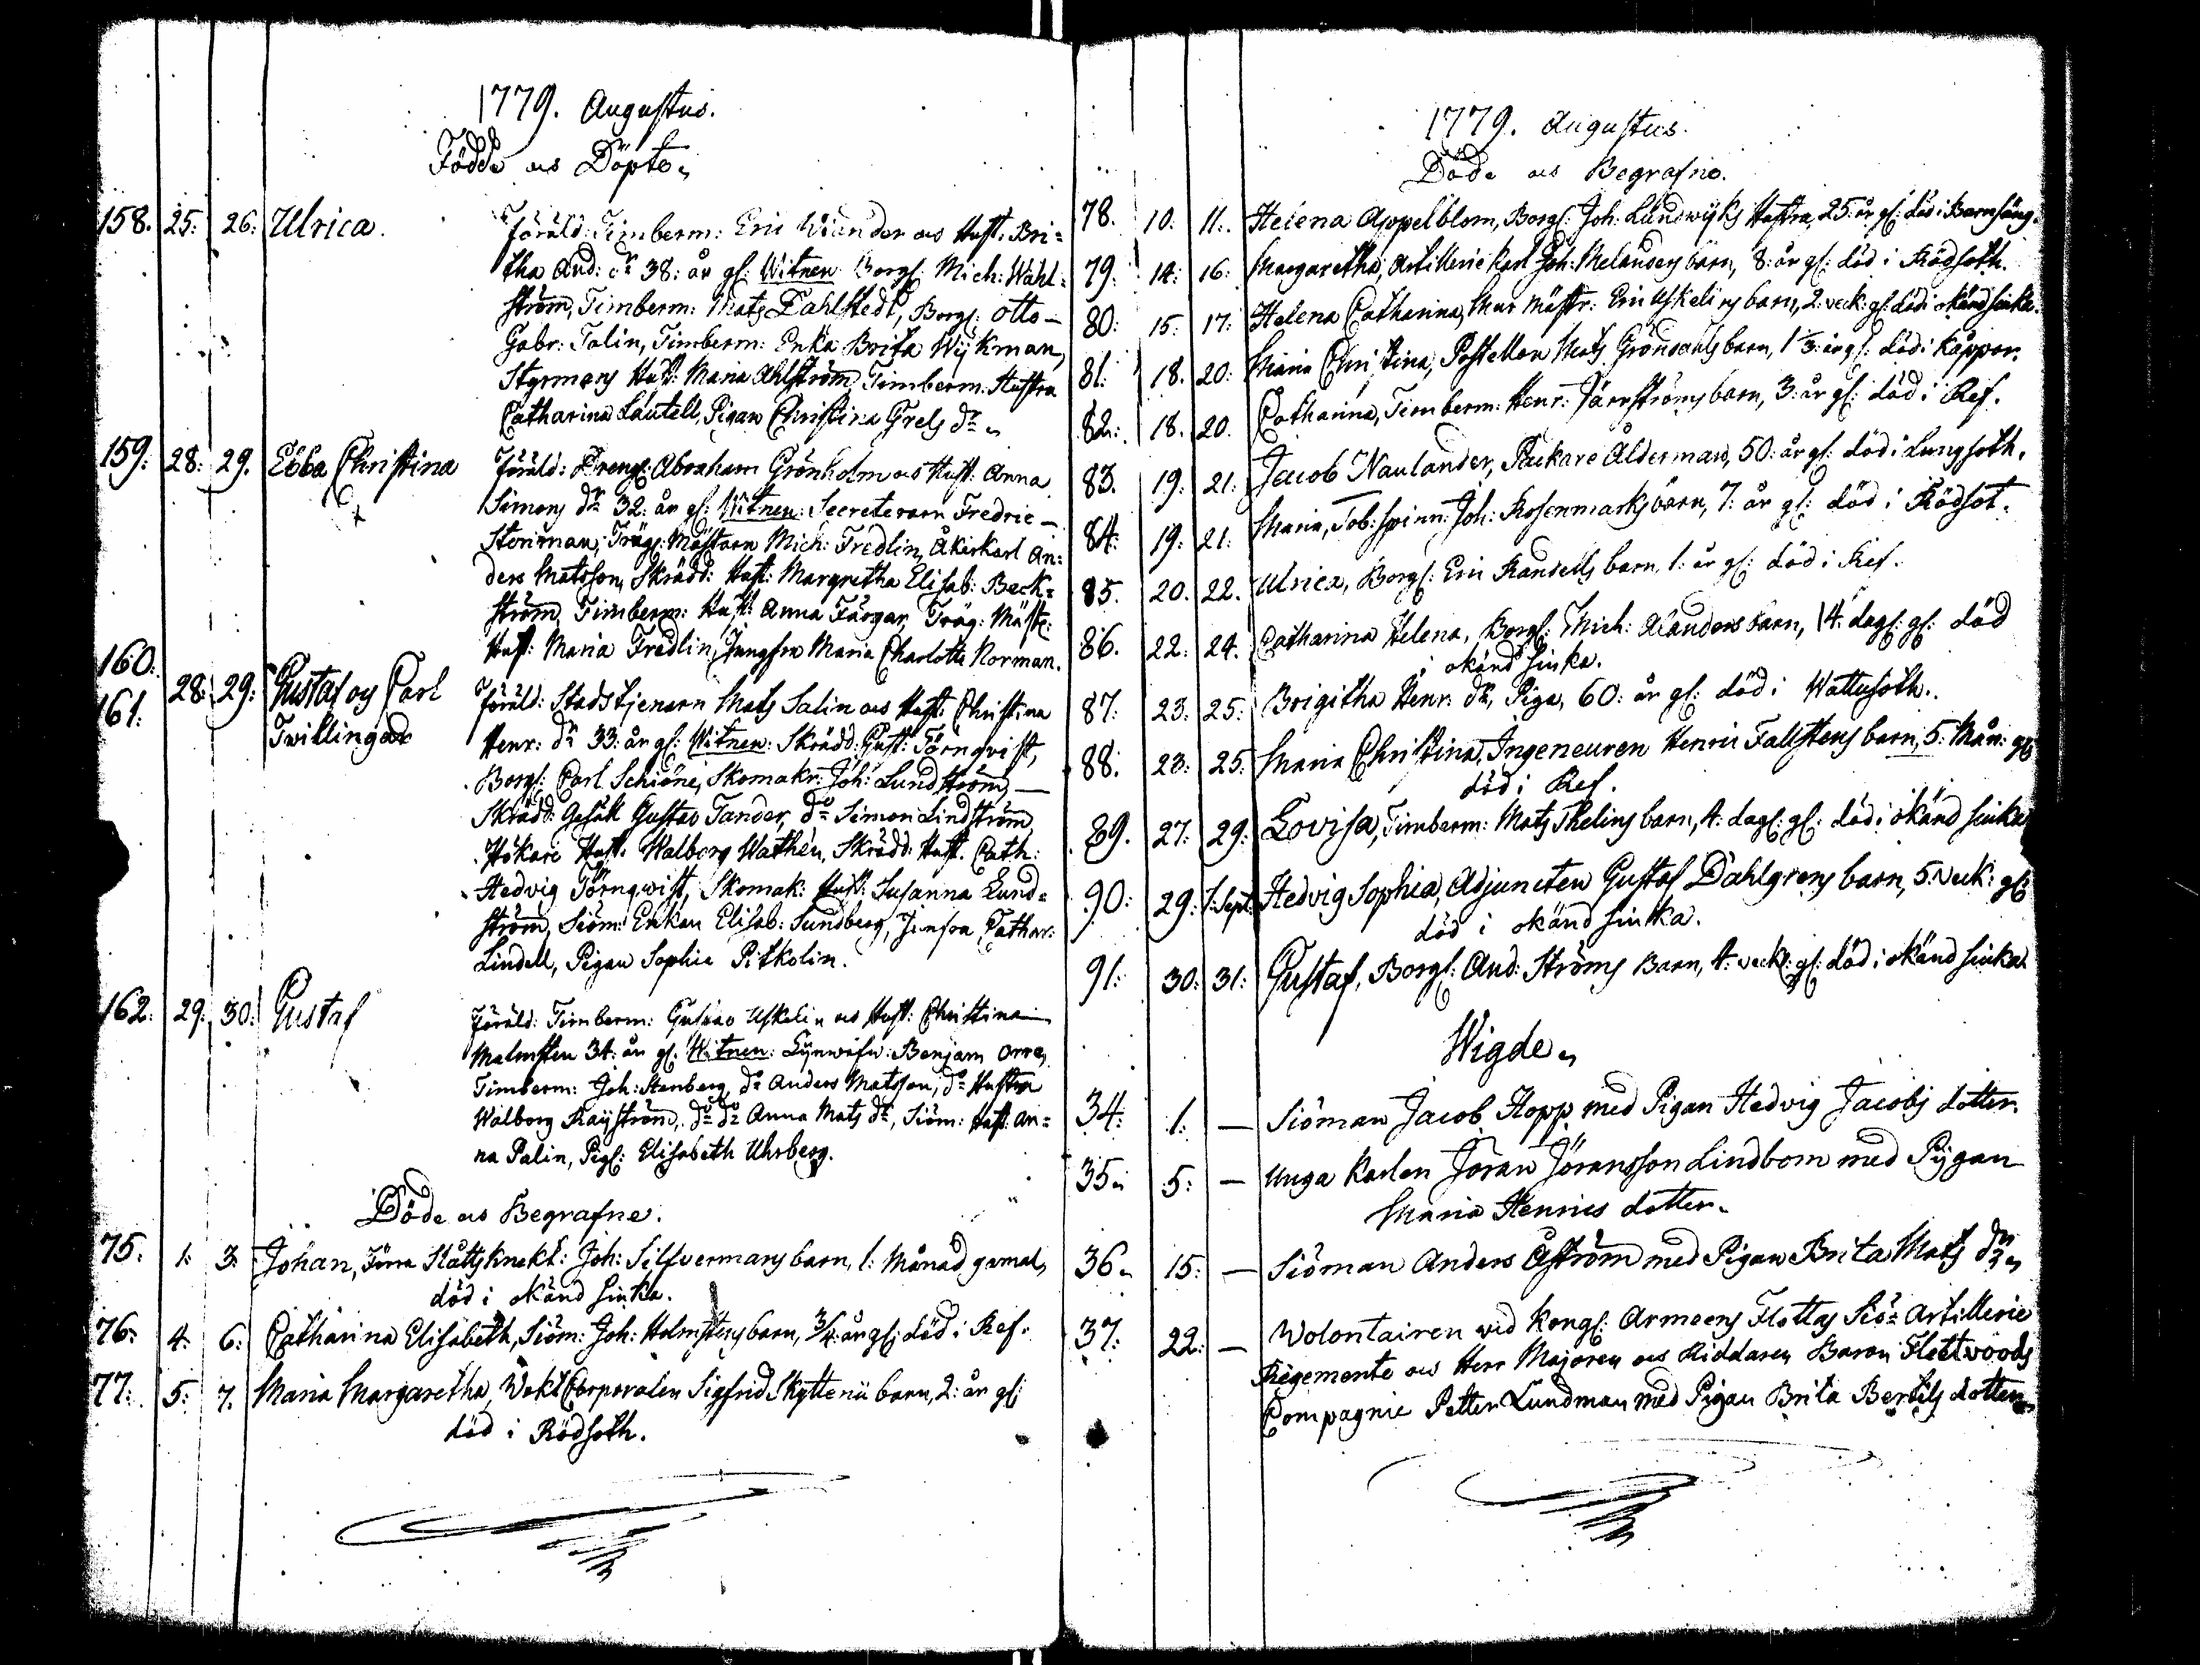 1779. Augustus.
Födde och Döpte.
158. 25: 26: Ulrica. Föräld: Timberm: Eric Wiander och Hust. Bri=
tha And: dr 38: år gl: Witnen: Borgl: Mich: Wahl=
ström, Timberm: Mats Dahlstedt, Borgl: Otto —
Gabr: Tolin, Timberm: Enka Brita Wijkman,
Styrmans Hust: Maria Ahlström, Timberm: Hustra
Catharina Lautell, Pigan Christina Grels dr
159: 28: 29. Ebba Christina Föräld: Drengl: Abraham Grönholm och Hust: Anna
Simons dr 32: år gl: Witnen: Secreteraren Fredric —
Stenman, Trägl: Mästaren Mich: Fredlin, Åkarkarl An=
ders Matsson, Skrädd: Hust: Margretha Elisab: Beck=
ström, Timberm: Hust: Anna Färgar, Träg: Mäst:
Hust: Maria Fredlin, Jungfru Maria Charlotta Norman.
160:
161: 28: 29: Gustaf og Carl Föräld: Stadstjenaren Mats Salin och Hust. Christina
Twillingar Henr: dr 33: år gl: Witnen: Skrädd: Gust: Törnqvist,
Borgl: Carl Schiöne, Skomakr: Joh: Lundström, —
Skrädd: Gesäll Gustav Tander, do Simon Lindström
Hökare Hust. Walborg Wathén, Skrädd: Hust. Cath:
Hedvig Törnqwist, Skomak: Hust: Susanna Lund=
ström, Siöm: Enkan Elisab: Sundberg, Jumfra Cathar:
Lindell, Pigan Sophia Pitkolin.
162: 29: 30: Gustaf Föräld: Timberm: Gustav Uskelin och Hust: Christina
Malmsten 34: år gl: Witnen: Lijnwäfw: Benjam Orre,
Timberm: Joh: Stenberg, do Anders Matsson, do Hustra
Walborg Kayström, do do Anna Mats dr, Siöm: Hust: An=
na Palin, Pigl: Elisabeth Uhrberg.
Döde och Begrafne.
75. 1: 3: Johan, Förra Slåttsknekt: Joh: Silfvermans barn, 1: Månad gamal,
död i okänd siuka.
76: 4. 6: Catharina Elisabeth, Siöm: Joh: Holmstens barn, 3/4: år gl: död i Ref.
77: 5: 7. Maria Margaretha, Wakt Corporalen Sigfrid Skytterii barn, 2: år gl:
död i Rödsoth.
1779. Augustus.
Döde och Begrafne.
78. 10: 11. Helena Appelblom, Borgl: Joh: Lundwijks Hustra, 25: år gl: död i Barnsäng.
79: 14: 16: Margaretha, Artillerie Karl Joh: Melanders barn, 8: år gl: död i Rödsoth.
80: 15: 17: Helena Catharina, Mur Mästr: Eric Uskelins barn, 2: veck: gl: död i okänd siuka.
81: 18. 20: Maria Christina, Postellon Mats Gröndahls barn, 1 1/3: år gl: död i Kåppor.
82: 18. 20. Catharina, Timberm: Henr: Järnströms barn, 3: år gl: död i Ref.
83. 19: 21: Jacob Naulander, Packare Ålderman, 50: år gl: död i Lungsoth.
84: 19: 21: Maria, Tob: spinn: Joh: Rosenmarks barn, 7: år gl: död i Rödsot.
85. 20. 22. Ulrica, Borgl: Eric Randells barn, 1: år gl: död i Ref.
86. 22: 24. Catharina Helena, Borgl: Mich: Xanders barn, 14: dagl: gl: död
i okänd siuka.
87: 23: 25: Brigitha Henr: dr, Piga, 60: år gl: död i Wattusoth.
88: 23: 25: Maria Christina, Ingeneuren Henric Fallstens barn, 5: Mån: gl:
död i Ref.
89. 27: 29: Lovisa, Timberm: Mats Thelins barn, 4: dagl: gl: död i okänd siuka
90: 29: 1: Sept: Hedvig Sophia, Adjuncten Gustaf Dahlgrens barn, 5: Veck: gl:
död i okänd siuka.
91: 30: 31: Gustaf, Borgl: And: Ströms Barn, 4: veck: gl: död i okänd siuka
Wigde
34: 1: — Siöman Jacob Hopp med Pigan Hedvig Jacobs dotter.
35. 5: — Unga Karlen Jöran Jöransson Lindbom med Pijgan
Maria Henrics dotter.
36. 15: — Siöman Anders Åström med Pigan Brita Mats dr
37: 22: — Wolontairen wid Kongl: Armeens Flottas Siö-Artillerie
Regemente och Herr Majoren och Riddaren Baron Fleetwoods
Compagnie Petter Lundman med Pigan Brita Bertils dotter